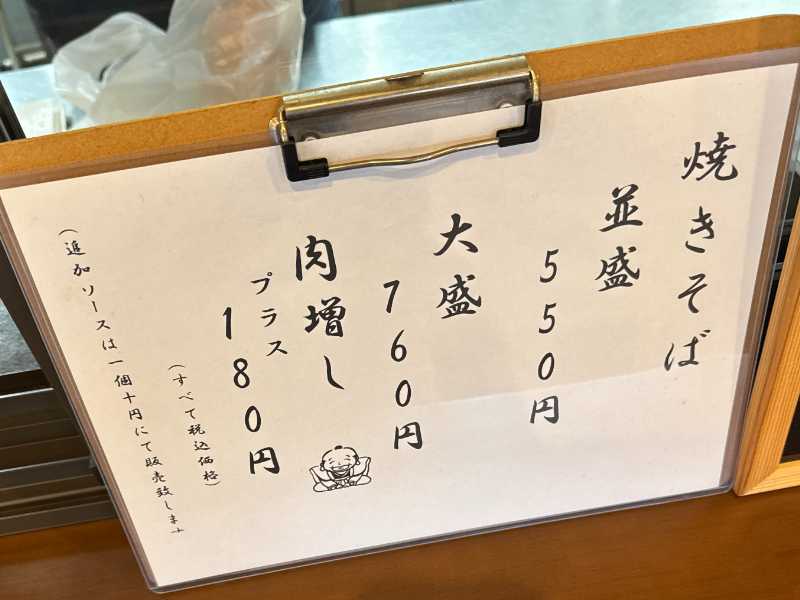 焼きそば
並盛
550円
大盛
760円
肉増し
プラス
180円
(すべて税込価格)
(追加ソースは一個十円にて販売致します